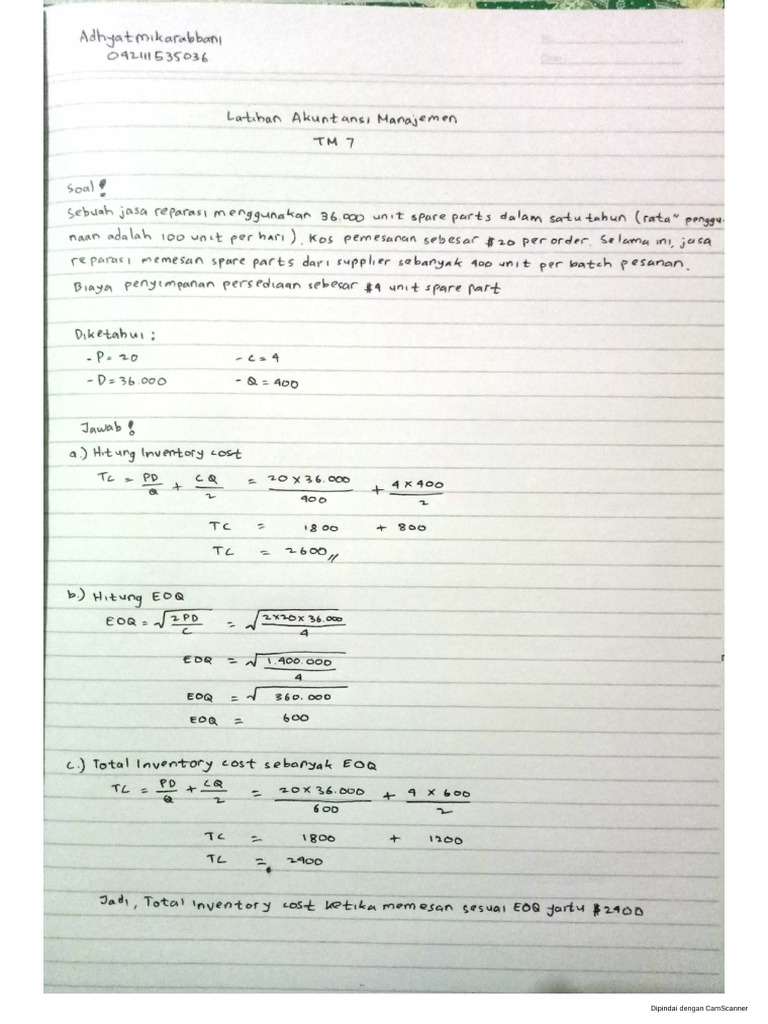 Adhyatmikarabbani
042111535036
No.
Date
Latihan Akuntansi Manajemen
TM 7
Soal!
Sebuah jasa reparasi menggunakan 36.000 unit spare parts dalam satu tahun (rata" penggu-
naan adalah 100 unit per hari). Kos pemesanan sebesar $20 per order. Selama ini, jasa
reparasi memesan spare parts dari supplier sebanyak 400 unit per batch pesanan.
Biaya penyimpanan persediaan sebesar $4 unit spare part
Diketahui :
- P = 20 - C = 4
- D = 36.000 - Q = 400
Jawab!
a.) Hitung Inventory cost
TC = PD/Q + CQ/2 = 20 x 36.000/400 + 4 x 400/2
TC = 1800 + 800
TC = 2600//
b.) Hitung EOQ
EOQ = √2PD/C = √2x20x36.000/4
EOQ = √1.400.000/4
EOQ = √360.000
EOQ = 600
c.) Total Inventory cost sebanyak EOQ
TC = PD/Q + CQ/2 = 20 x 36.000/600 + 4 x 600/2
TC = 1800 + 1200
TC = 2400
Jadi, Total inventory cost ketika memesan sesuai EOQ yaitu $2400
Dipindai dengan CamScanner